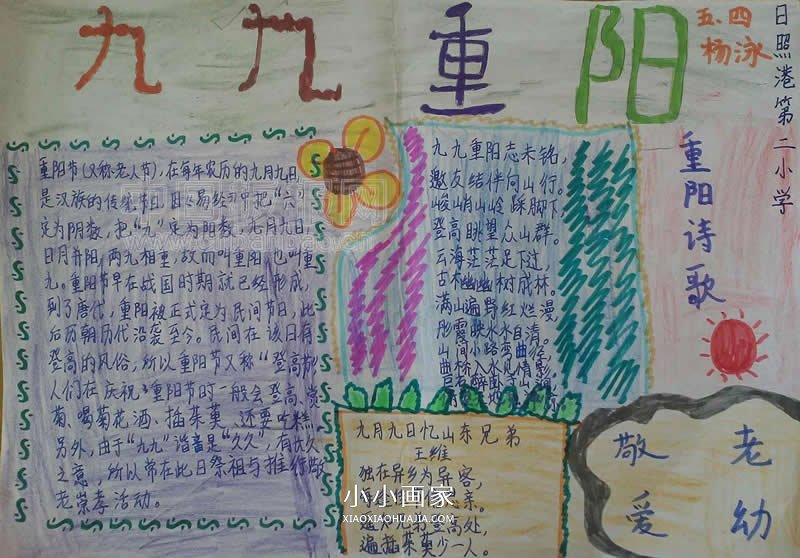 九九重阳
五、四
杨泳
日照港第二小学
重阳节(又称老人节),在每年农历的九月九日,
是汉族的传统节日。《易经》中把"六"
定为阴数,把"九"定为阳数,九月九日,
日月并阳,两九相重,故而叫重阳,也叫重
九。重阳节早在战国时期就已经形成,
到了唐代,重阳被正式定为民间节日,此
后历朝历代沿袭至今。民间在该日有
登高的风俗,所以重阳节又称"登高节
人们在庆祝重阳节时一般会登高、赏
菊、喝菊花酒、插茱萸、还要吃糕
另外,由于"九九"谐音是"久久",有长久
之意,所以常在此日祭祖与推行敬
老崇孝活动。
九九重阳志未铭,
邀友结伴向山行。
峻峭山岭踩脚下
登高眺望众山群。
云海茫茫足下过,
古木幽幽树成林。
满山遍野红烂漫
映水水自清。
山间小路弯曲径,
曲桥入水见倒影
重阳诗歌
九月九日忆山东兄弟
王维
独在异乡为异客,
亲。
登高处,
遍插茱萸少一人。
敬老
爱幼
小小画家
XIAOXIAOHUAJIA.COM